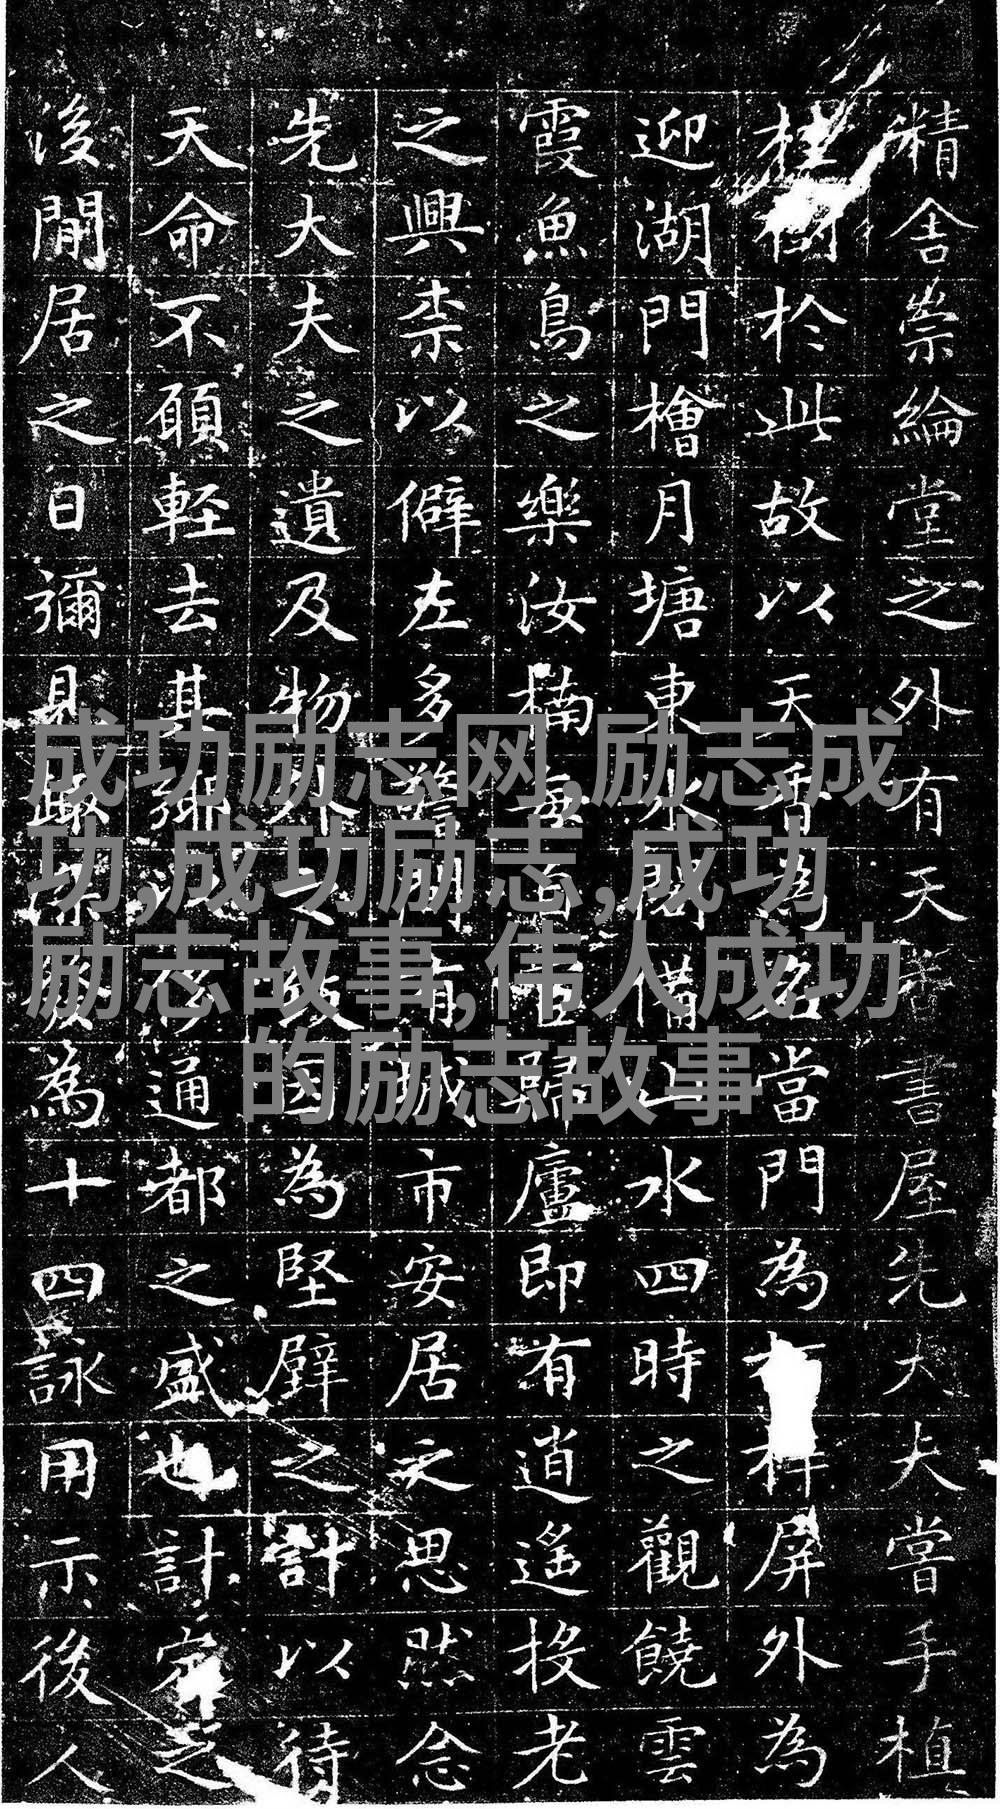 精舍崇綸堂之外有天香書屋先大夫嘗手植
桂樹於此故以天香為名當門為屏外為
迎湖門檜月塘東水閣借山水四時之觀饒雲
霞魚鳥之樂汝楠歸廬即有逍遙投老
之興柰以僻左多警朋城市安居之思然念
先大夫之遺及物外之因為堅壁之計以待
天命不願輕去其鄉通都之盛也計定之
後閒居之日彌見趣深發為十四詠用示後人
成功励志网,励志成
功,成功励志,成功
励志故事,伟人成功
的励志故事